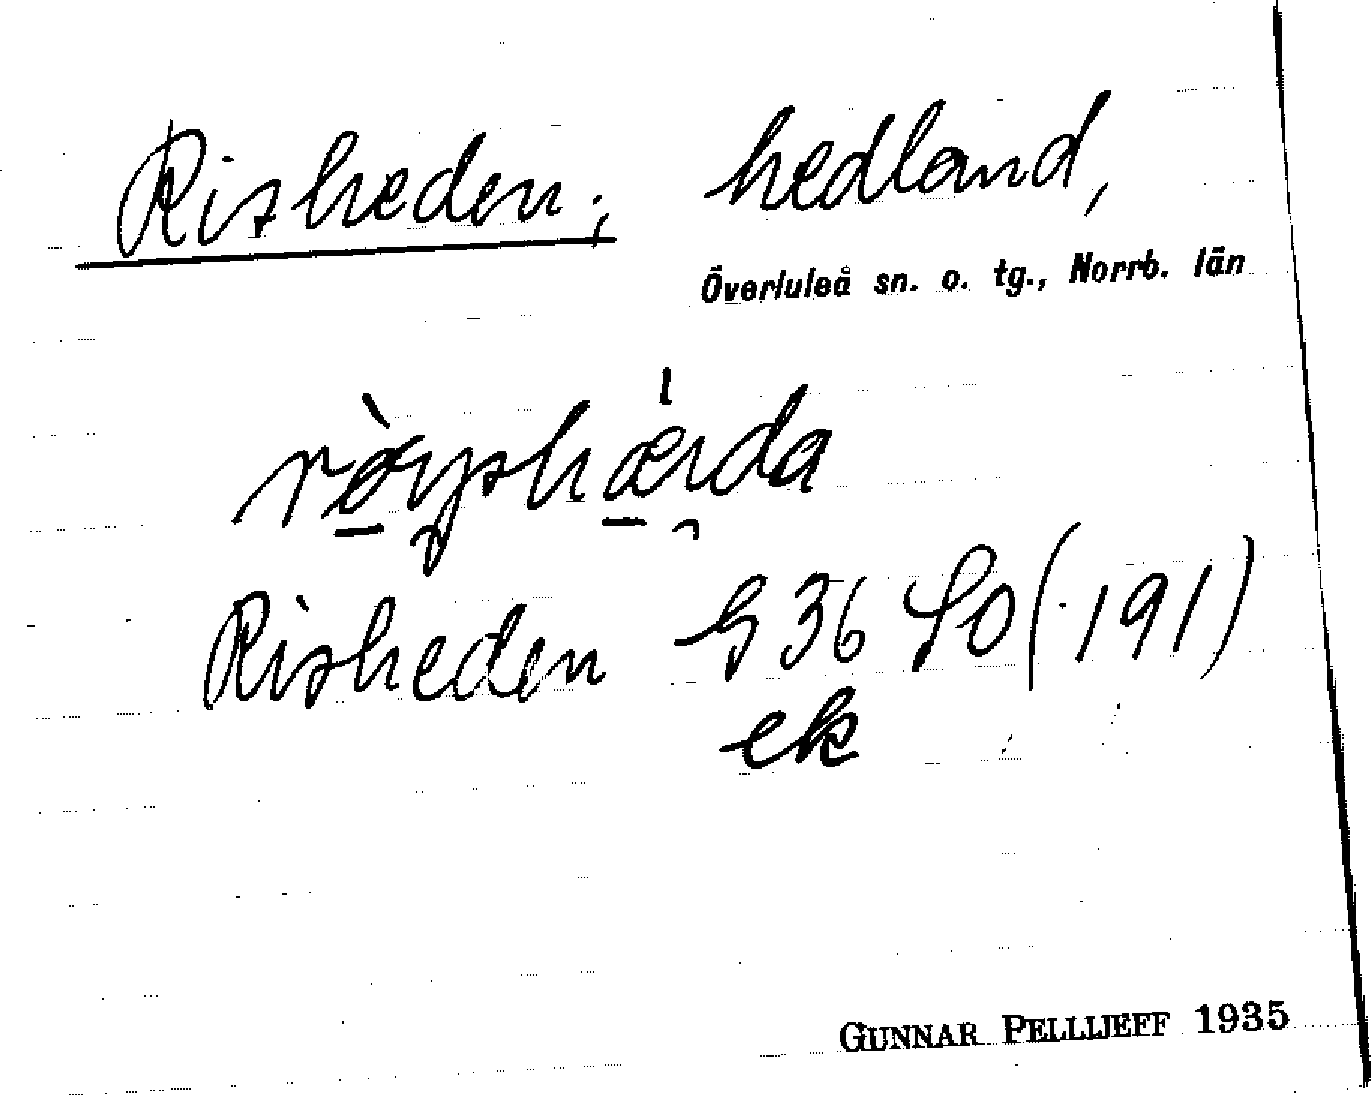 Risheden; hedland,
Överluleå sn. o. tg., Norrb. län
Risheden G 36 SO (191)
ek
GUNNAR PELLIJEFF 1935